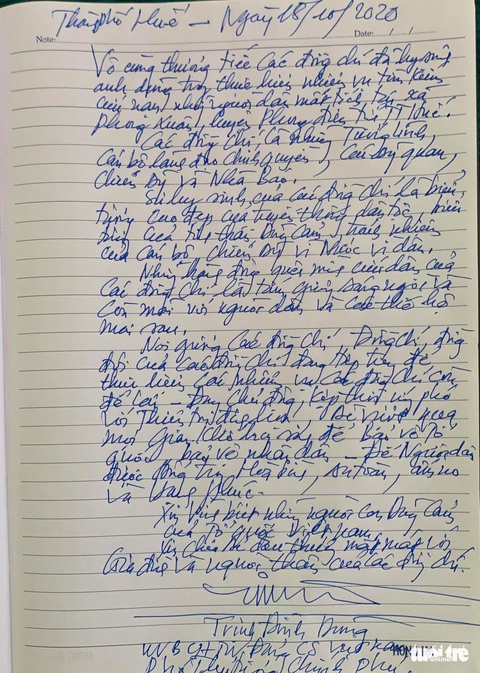 Thành phố Huế - Ngày 18/10/2020
Note: Date: / /
Vô cùng thương tiếc các đồng chí đã hy sinh
anh dũng trong thực hiện nhiệm vụ tìm kiếm
cứu nạn những người dân mất tích tại xã
Phong Xuân, huyện Phong Điền tỉnh TT Huế.
Các đồng chí là những Tướng lĩnh,
cán bộ lãnh đạo chính quyền, cán bộ quân,
chiến sỹ và Nhà báo.
Sự hy sinh của các đồng chí là biểu
tượng cao đẹp của truyền thống dân tộc, biểu
tượng của tinh thần dũng cảm, trách nhiệm
của cán bộ, chiến sỹ vì Nước vì dân.
Những hành động quên mình cứu dân của
các đồng chí là tấm gương sáng ngời và
còn mãi với người dân và các thế hệ
mai sau.
Noi gương các đồng chí - Đồng chí, đồng
đội của các đồng chí đang tiếp tục để
thực hiện các nhiệm vụ các đồng chí còn
để lại - chủ động, kịp thời ứng phó
với thiên tai, để vượt qua
mọi gian khó, để bảo vệ Tổ
quốc, bảo vệ nhân dân - Để Người dân
được sống trong Hòa bình, an toàn, ấm no
và hạnh phúc.
Xin vĩnh biệt những người con Dũng Cảm
của Tổ quốc Việt Nam.
Xin chia sẻ đau thương mất mát với
Gia đình và người thân của các đồng chí.
Trịnh Đình Dũng
UVBCHTW Đảng CS Việt Nam
Phó Thủ tướng Chính Phủ.
tuổi trẻ
online